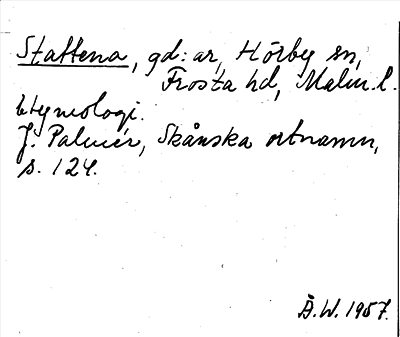 Stattena, gd:ar, Hörby sn,
Frosta hd, Malm.l.
Etymologi.
J. Palmér, Skånska ortnamn,
s. 124.
Å.W. 1957.